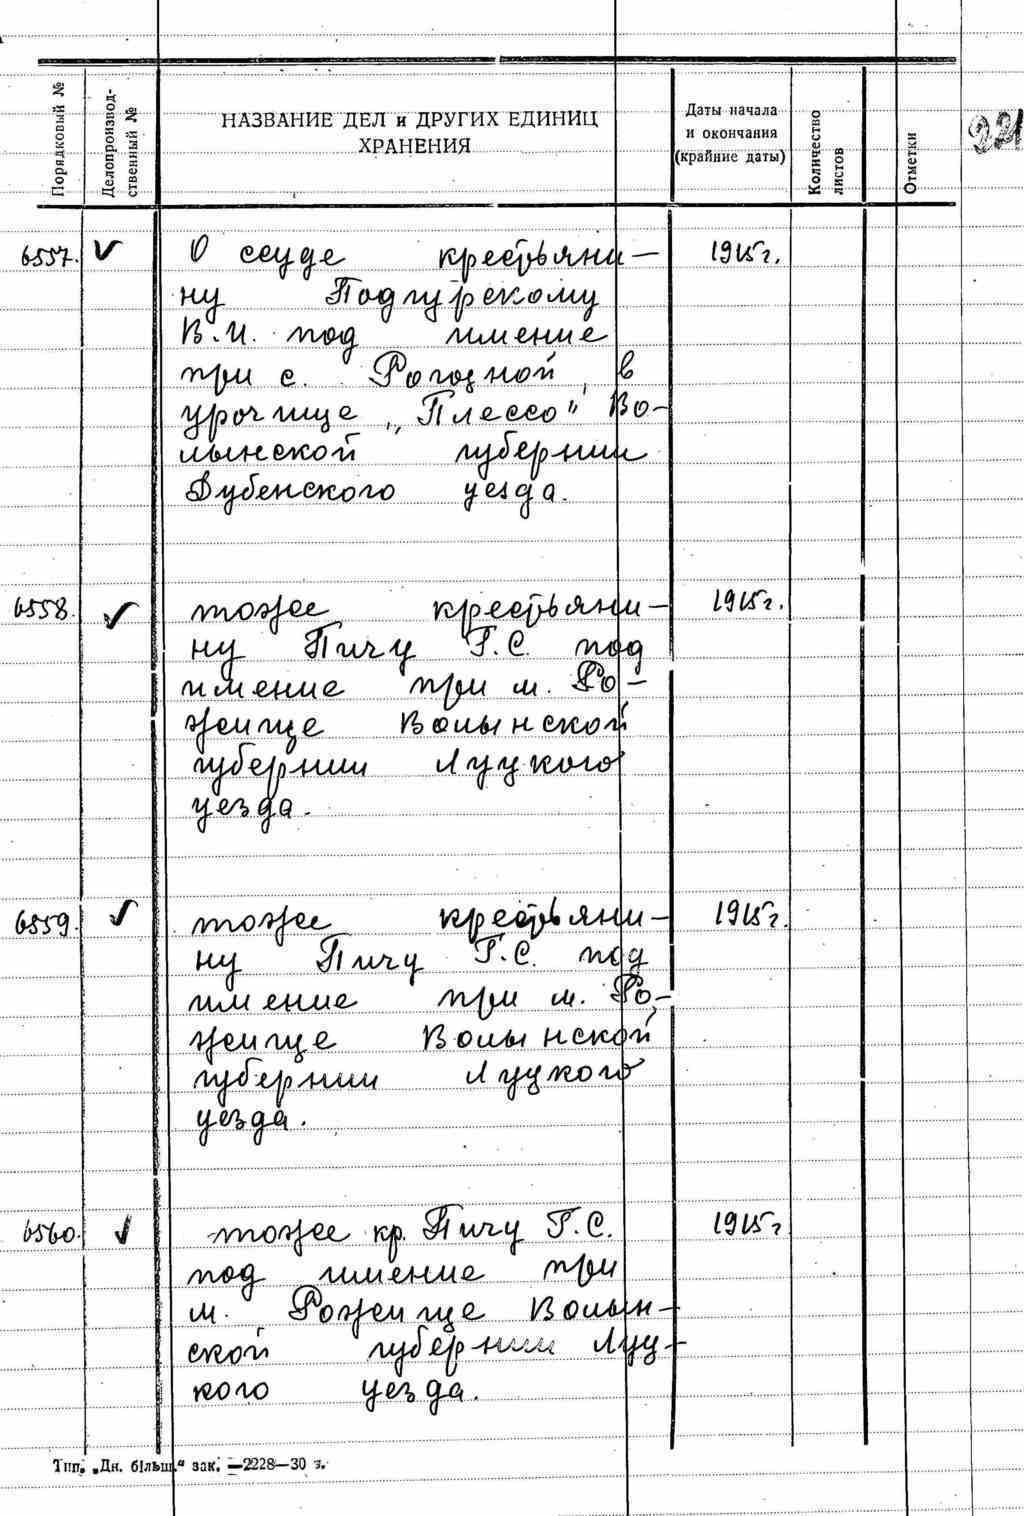 Порядковый №
Делопроизвод-
ственный №
НАЗВАНИЕ ДЕЛ и ДРУГИХ ЕДИНИЦ
ХРАНЕНИЯ
Даты начала
и окончания
(крайние даты)
Количество
листов
Отметки
6557. ✓ О ссуде крестьяни- 1915г.
ну Подгурскому
В.И. под имение
при с. Рогозной, в
урочище „Плессо" Во-
лынской губернии
Дубенского уезда.
6558. ✓ тоже крестьяни- 1915г.
ну Пичу Г.С. под
имение при м. Ро-
жище Волынской
губернии Луцкого
уезда.
6559. ✓ тоже крестьяни- 1915г.
ну Пичу Г.С. под
имение при м. Ро-
жище Волынской
губернии Луцкого
уезда.
6560. ✓ тоже кр. Пичу Г.С. 1915г
под имение при
м. Рожище Волын-
ской губернии Луц-
кого уезда.
Тип. „Дн. більш." зак. —2228—30 г.